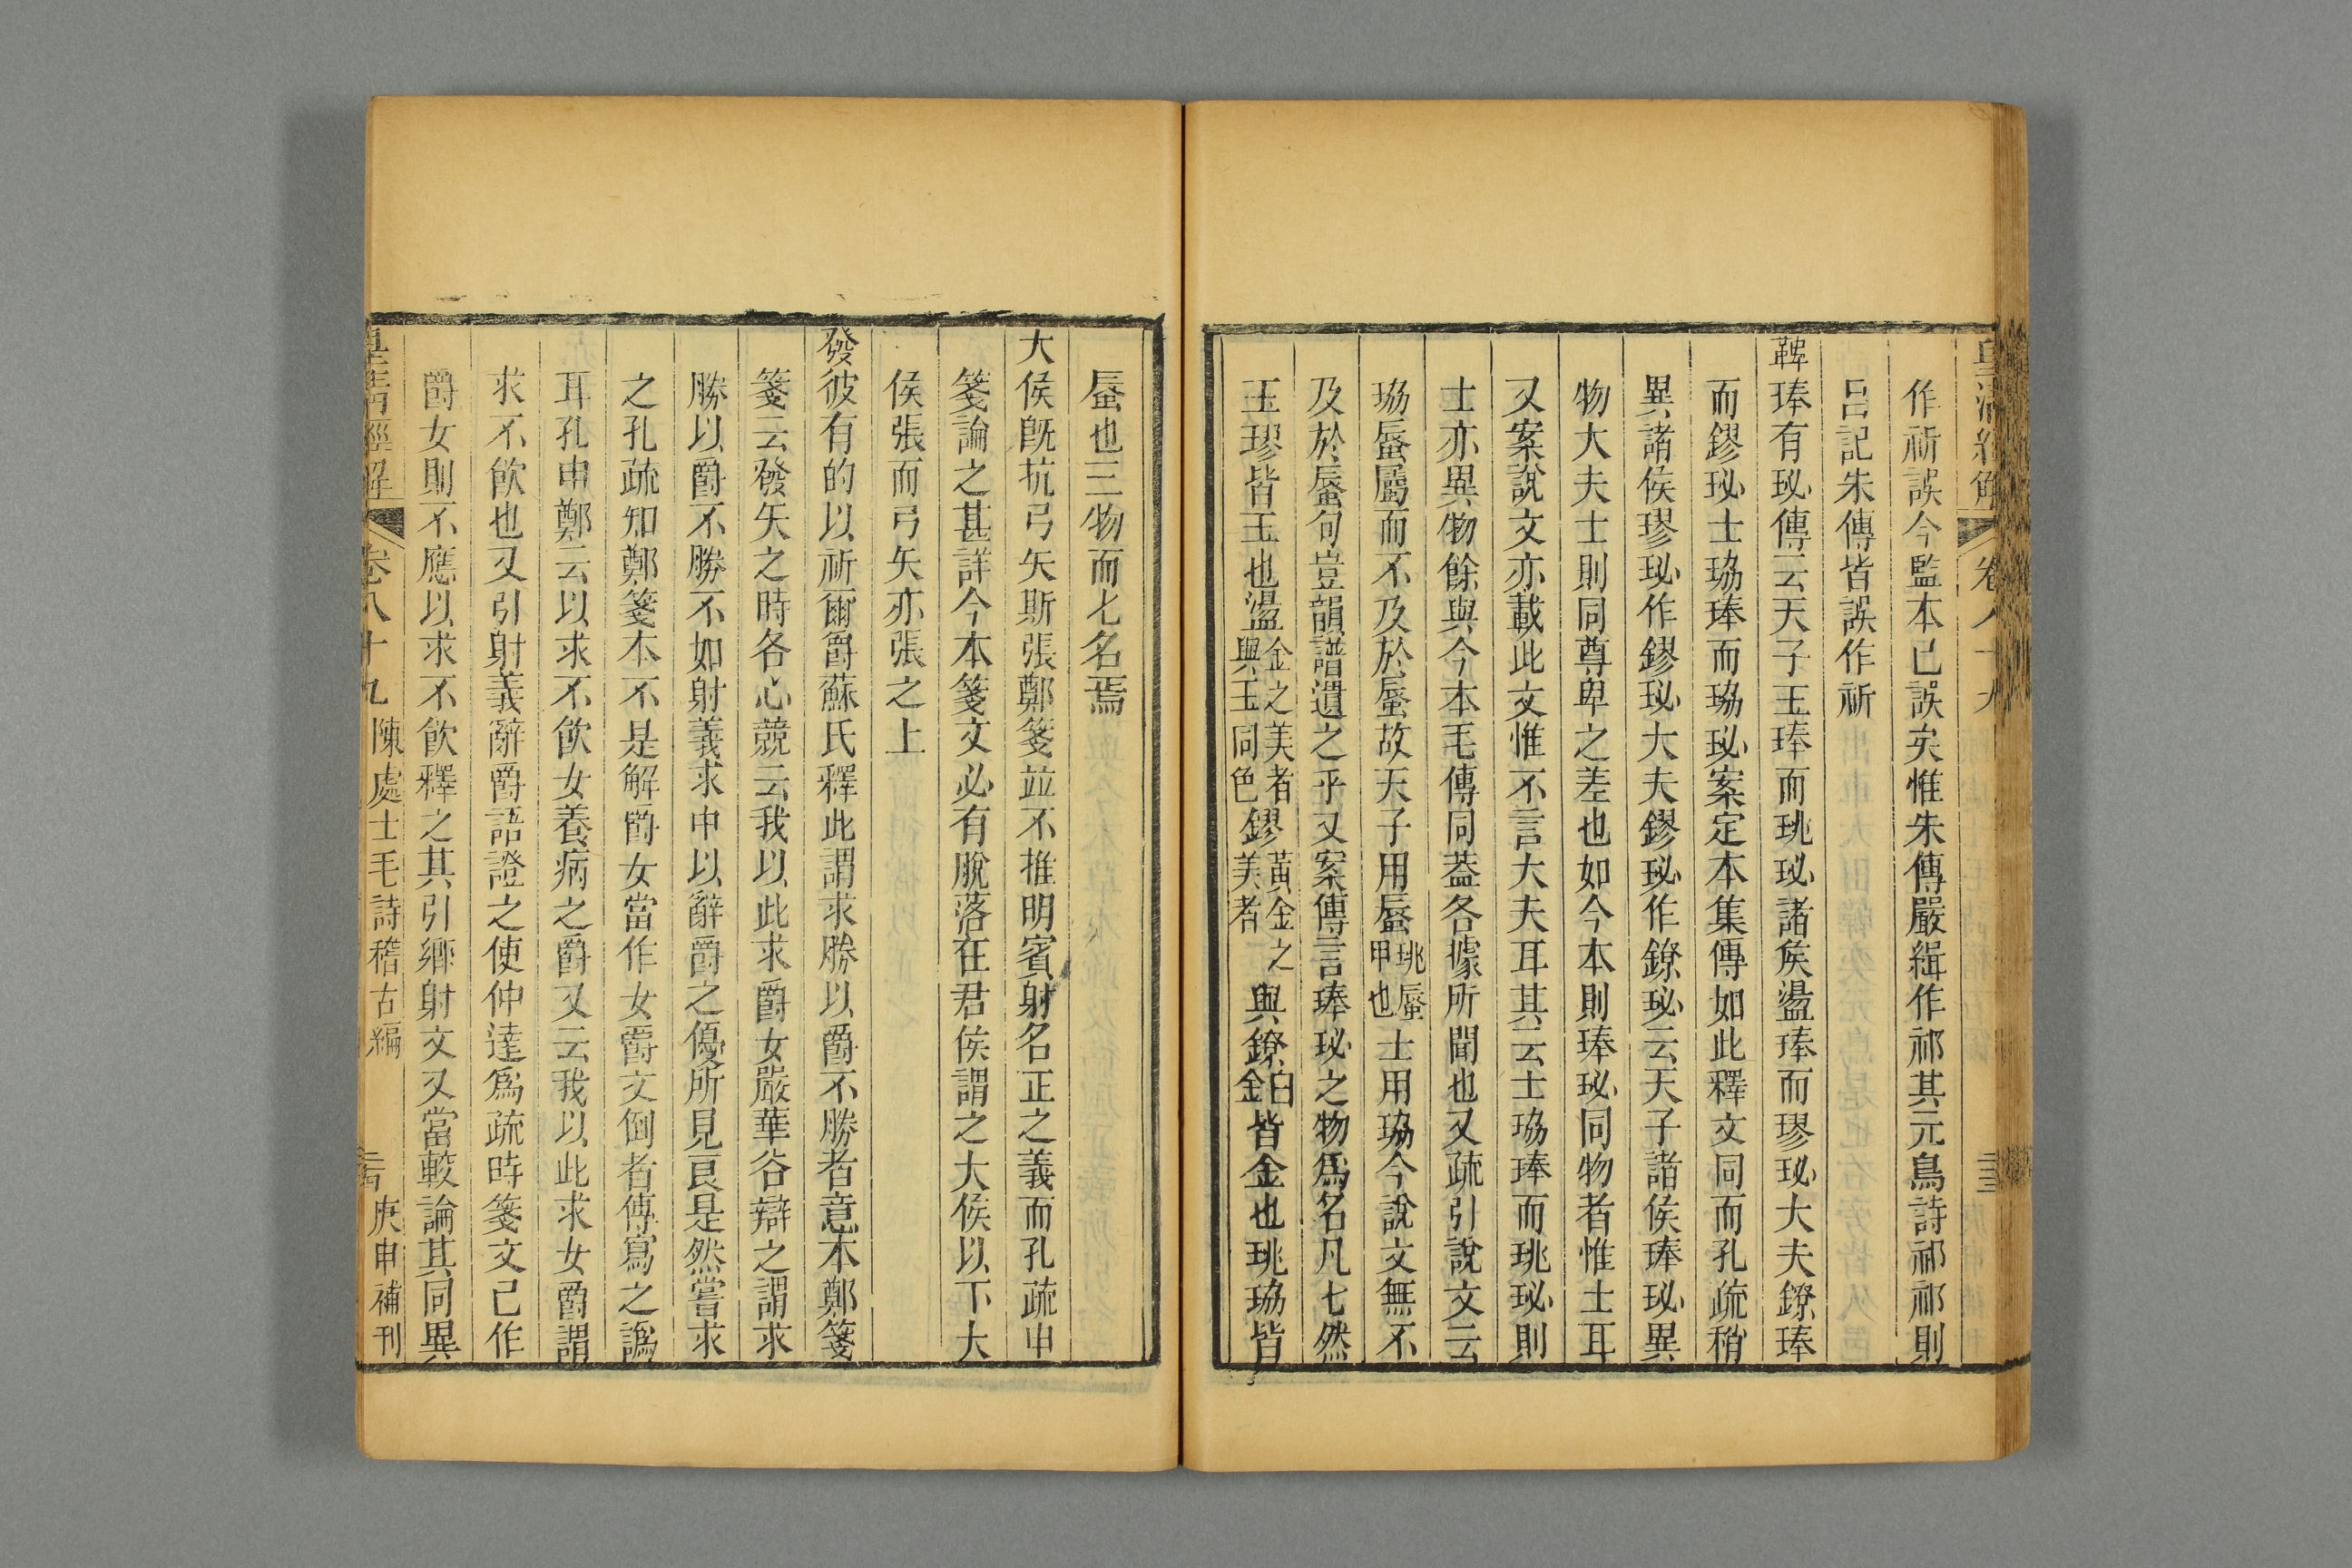 作祈誤今監本已誤矣惟朱傳嚴緝作祁其元鳥詩祁祁則
呂記朱傳皆誤作祈
鞞琫有珌傳云天子玉琫而珧珌諸侯璗琫而璆珌大夫鐐琫
而鏐珌士珕琫而珕珌案定本集傳如此釋文同而孔疏稍
異諸侯璆珌作鏐珌大夫鏐珌作鐐珌云天子諸侯琫珌異
物大夫士則同尊卑之差也如今本則琫珌同物者惟士耳
又案說文亦載此文惟不言大夫耳其云士珕琫而珧珌則
士亦異物餘與今本毛傳同蓋各據所聞也又疏引說文云
珕蜃屬而不及於蜃故天子用蜃珧蜃甲也士用珕今說文無不
及於蜃句豈韻譜遺之乎又案傳言琫珌之物爲名凡七然
玉璆皆玉也璗金之美者與玉同色鏐黃金之美者與鐐白金皆金也珧珕皆
蜃也三物而七名焉
大侯旣抗弓矢斯張鄭箋並不推明賓射名正之義而孔疏申
箋論之甚詳今本箋文必有脫落在君侯謂之大侯以下大
侯張而弓矢亦張之上
發彼有的以祈爾爵蘇氏釋此謂求勝以爵不勝者意本鄭箋
箋云發矢之時各心競云我以此求爵女嚴華谷辯之謂求
勝以爵不勝不如射義求中以辭爵之優所見良是然嘗求
之孔疏知鄭箋本不是解爵女當作女爵文倒者傳寫之譌
耳孔申鄭云以求不飲女養病之爵又云我以此求女爵謂
求不飲也又引射義辭爵語證之使仲達爲疏時箋文已作
爵女則不應以求不飲釋之其引鄉射文又當較論其同異
皇清經解 卷八十九 陳處士毛詩稽古編 庚申補刊